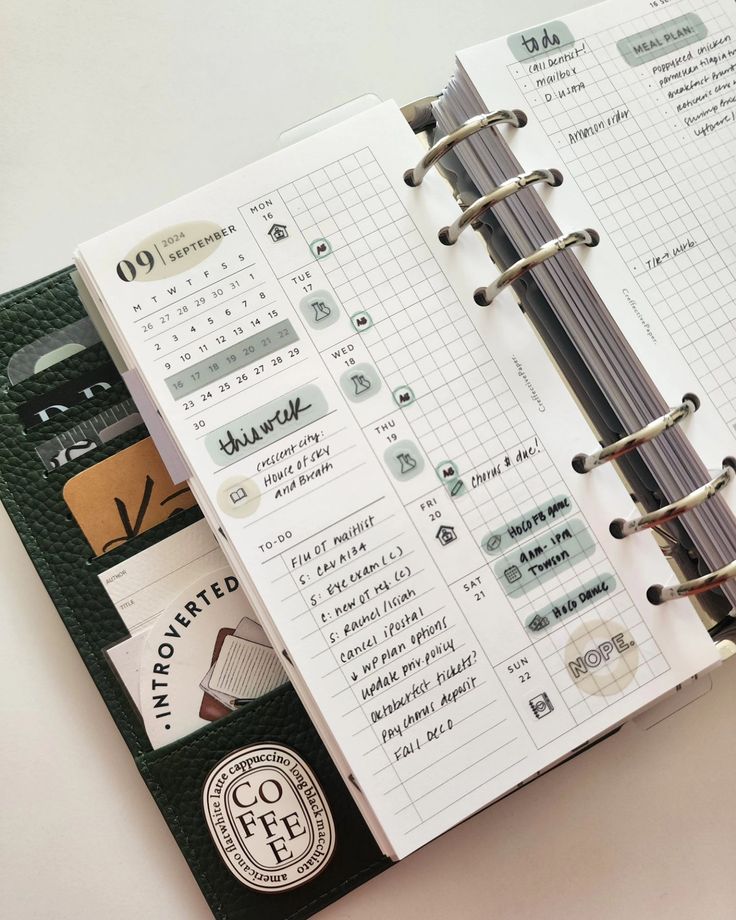 09
2024
SEPTEMBER
M T W T F S S
26 27 28 29 30 31 1
2 3 4 5 6 7 8
9 10 11 12 13 14 15
16 17 18 19 20 21 22
23 24 25 26 27 28 29
30
this week
crescent city:
House of sky
and Breath
TO-DO
FIU OT waitlist
S: CRVA134
S: Eye exam (C)
C: new OT ref. (C)
S: Rachel/Isiah
cancel iPostal
↓ WP plan options
update priv. policy
Oktoberfest tickets?
PAY Chorus deposit
Fall Deco
MON
16
AB
TUE
17
AB
WED
18
AB
THU
19
AB
chorus $ due!
FRI
20
HOCO FB game
SAT
21
9am-1pm
Towson
HoCo Dance
SUN
22
NOPE.
Creffective Paper.
to do
· call Dentist!
· mailbox
· Amazon order
Creffective Paper.
16 SE
MEAL PLAN:
· poppyseed chicken
· parmesan tilapia
· Breakfast
AUTHOR
TITLE
· INTROVERTED
COFFEE
americano flatwhite latte cappuccino long black macchiato